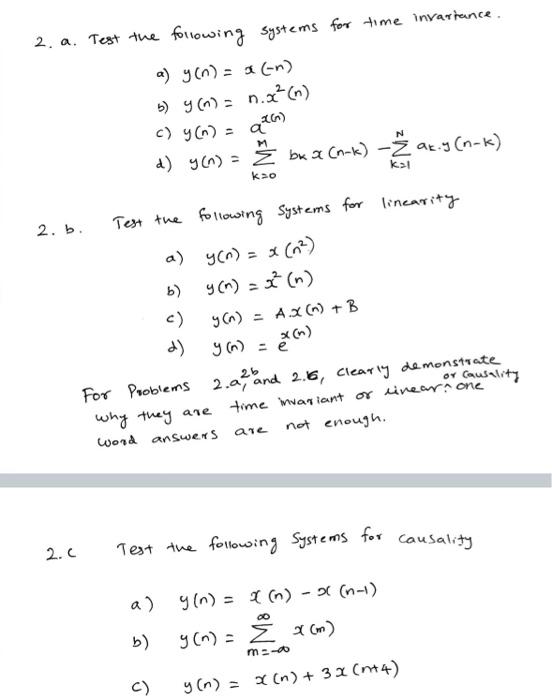 2. a. Test the following systems for time invariance.
a) y(n) = x(-n)
b) y(n) = n.x²(n)
c) y(n) = a^x(n)
d) y(n) = M Σ k=0 bₖ x(n-k) - N Σ k=1 aₖ.y(n-k)
2. b. Test the following systems for linearity
a) y(n) = x(n²)
b) y(n) = x²(n)
c) y(n) = A.x(n) + B
d) y(n) = e^x(n)
For Problems 2.a, 2b and 2.c, clearly demonstrate
why they are time invariant or linear ^ or causality one
word answers are not enough.
2. c Test the following systems for causality
a) y(n) = x(n) - x(n-1)
b) y(n) = ∞ Σ m=-∞ x(m)
c) y(n) = x(n) + 3x(n+4)